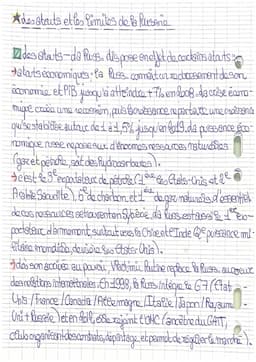 ★ Les atouts et les limites de la Russie
1 Les atouts - La Russ. dispose en effet de certains atouts :
→ atouts économiques : la Russ. connait un redressement de son
économie et PIB jusqu'à atteindre + 7% en 2008. La crise écono-
mique créée une récession, puis la croissance repart avec une croissance
qui se stabilise autour de 1 à 1,5% jusqu'en 2019. La puissance éco-
nomique russe repose sur d'énormes ressources naturelles
(gaz et pétrole, soit des hydrocarbures).
→ c'est le 3e exportateur de pétrole (1er les États-Unis et 2e
Arabie Saoudite), 6e de charbon et 1er de gaz naturel. L'essentiel
de ces ressources se trouvent en Sybérie. La Russ. est aussi le 2e ex-
portateur d'armement surtout vers la Chine et l'Inde (2e puissance mi-
litaire mondiale, derrière les États-Unis).
→ dès son accession au pouvoir, Vladimir Poutine replace la Russ. au coeur
des relations internationales. En 1998, la Russ. intègre le G7 (État
- Unis / France / Canada / Allemagne / Italie / Japon / Royaume
Uni + Russie) et en 2012, elle rejoint l'OMC (ancêtre du GATT,
elle organisent des contrats, dépistage et permet de réguler le marché).